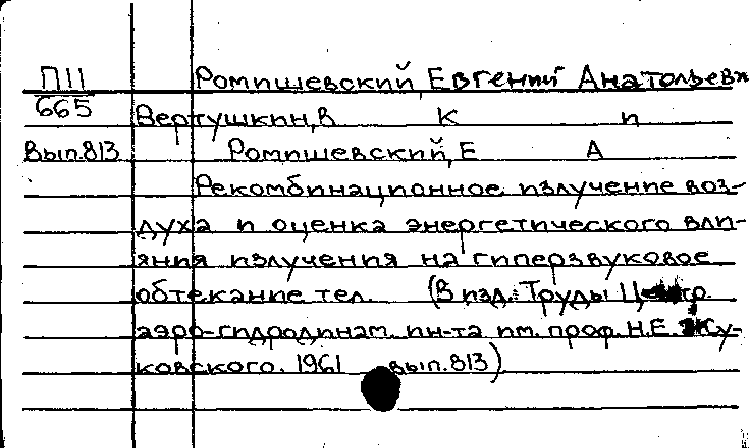 П11 Ромишевский, Евгений Анатольеви
665
Вертушкин, В К и
Вып.813 Ромишевский, Е А
Рекомбинационное излучение воз-
духа и оценка энергетического вли-
яния излучения на гиперзвуковое
обтекание тел. (В изд.: Труды Центр.
аэро-гидродинам. ин-та им. проф. Н.Е. Жу-
ковского. 1961 вып.813)